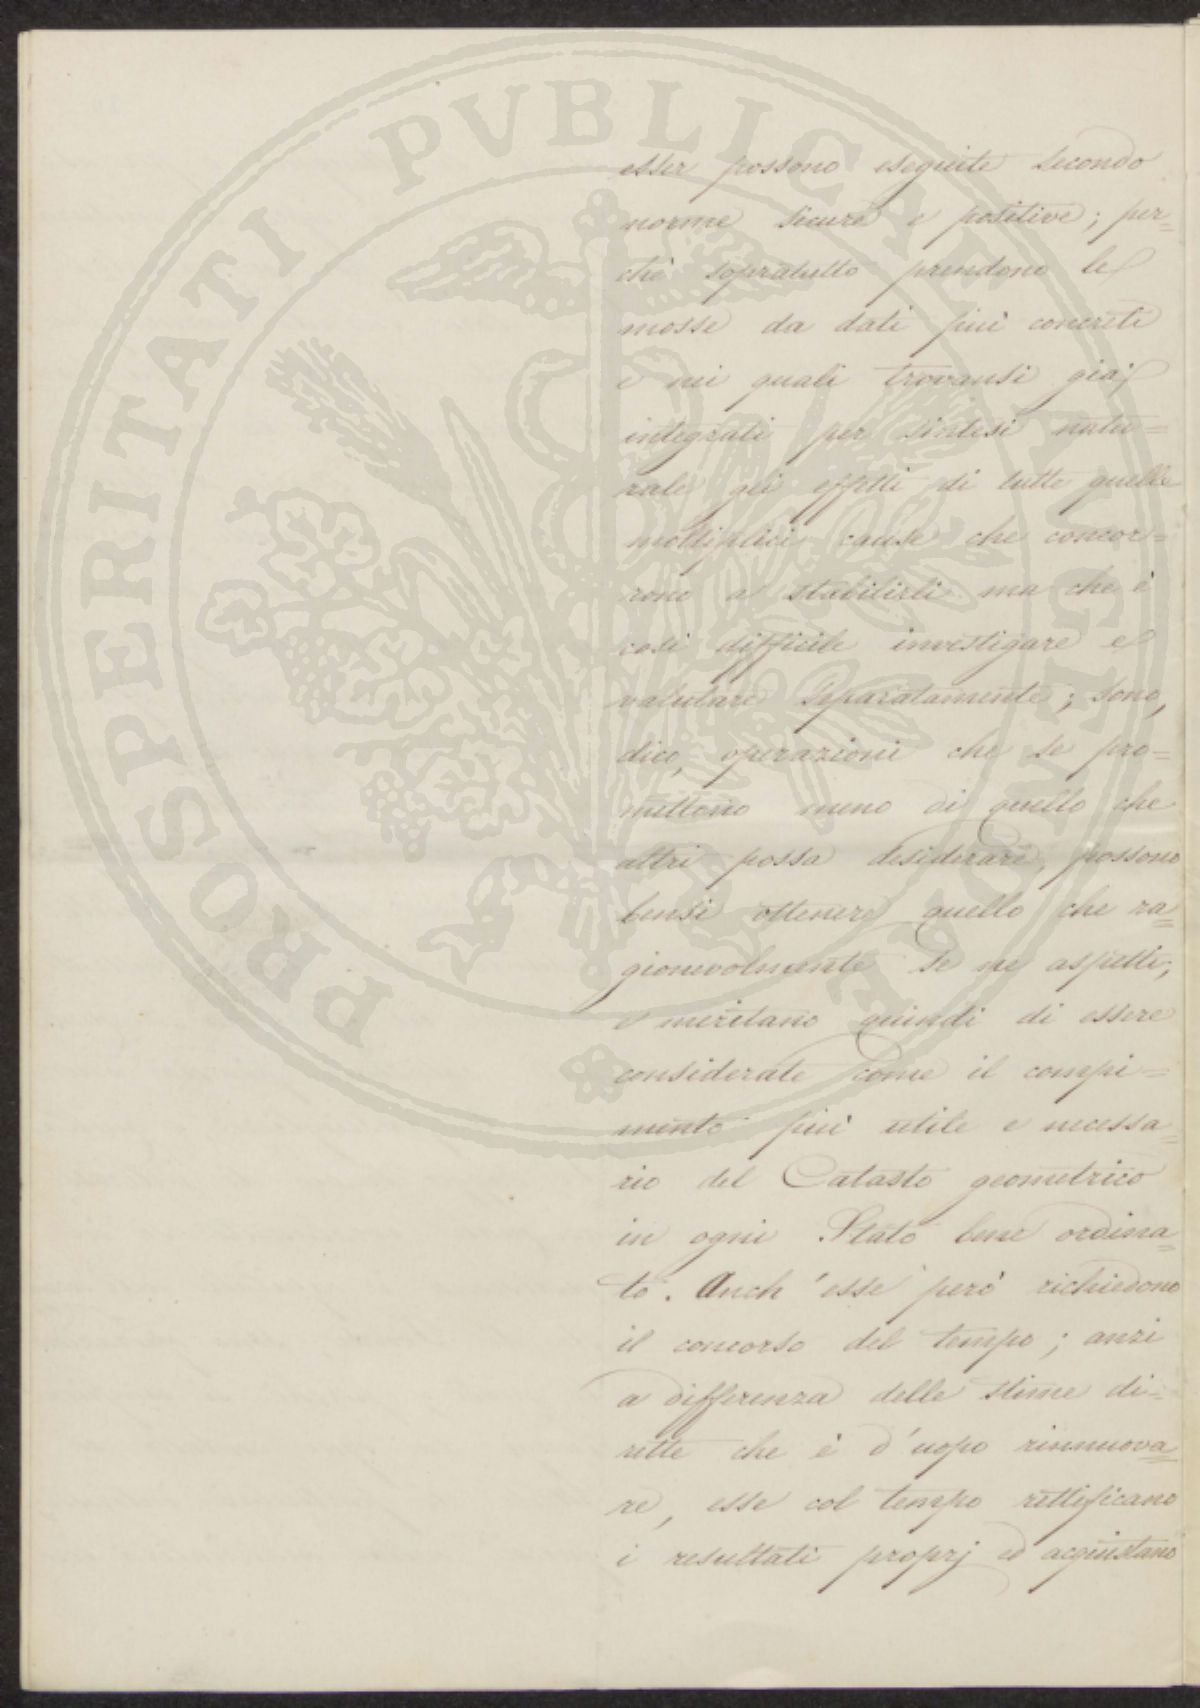 esser possono eseguite secondo
norme sicure e positive; per=
chè sopratutto prendono le
mosse da dati più concreti
e nei quali trovansi già
integrati per sintesi natu=
rale gli effetti di tutte quelle
moltiplici cause che concor=
rono a stabilirli ma che è
così difficile investigare e
valutare separatamente; sono,
dico, operazioni che se pro=
mettono meno di quello che
altri possa desiderare, possono
bensi ottenere quello che ra=
gionevolmente se ne aspetti,
e meritano quindi di essere
considerate come il compi=
mento più utile e necessa=
rio del Catasto geometrico
in ogni Stato bene ordina=
to. Anch'esse però richiedono
il concorso del tempo; anzi
a differenza delle stime di=
rette che è d'uopo rinnuova=
re, esse col tempo rettificano
i resultati proprj ed acquistano
PROSPERITATI PVBLICAE